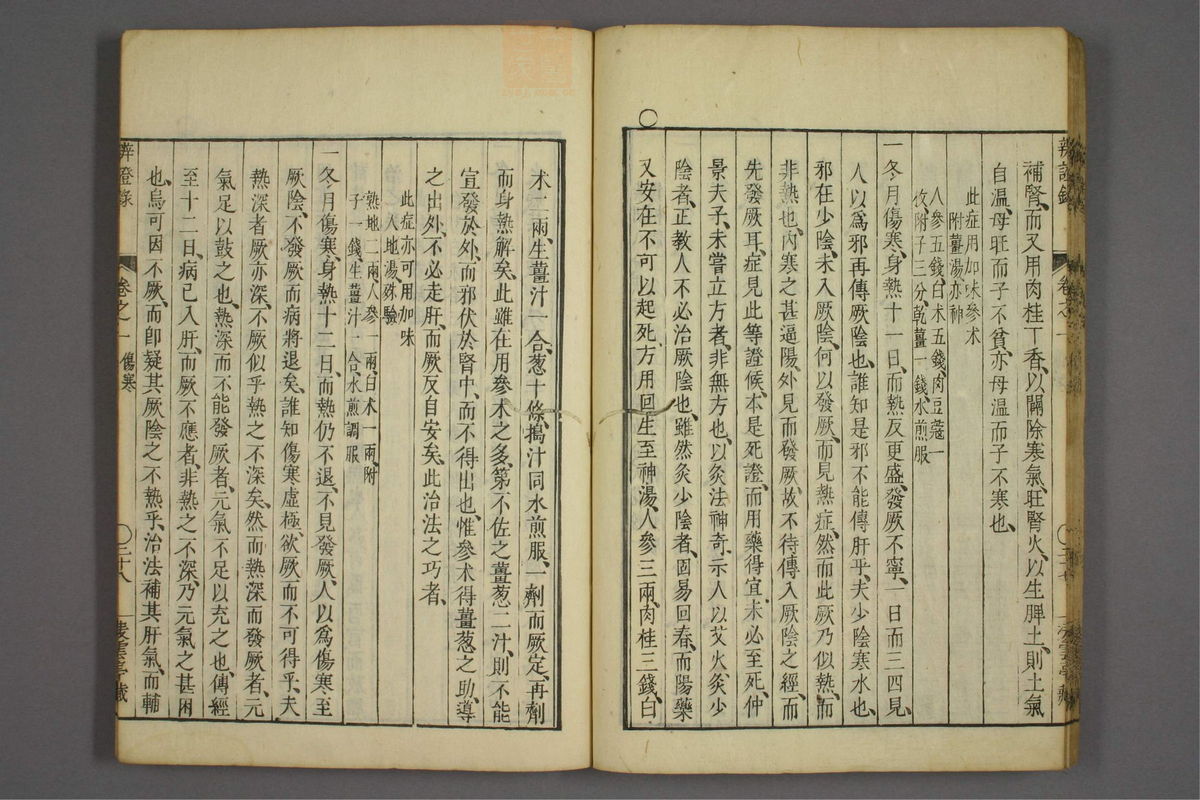 補腎、而又用肉桂丁香、以闢除寒氣、旺腎火、以生脾土、則土氣
自溫、母旺而子不貧、亦母溫而子不寒也、
此症用加味參朮
附薑湯亦神
人參五錢、白朮五錢、肉豆蔻一
枚、附子三分、乾薑一錢、水煎服
一冬月傷寒、身熱十一日、而熱反更盛、發厥不寧、一日而三四見、
人以爲邪再傳厥陰也、誰知是邪不能傳肝乎、夫少陰寒水也、
邪在少陰、未入厥陰、何以發厥、而見熱症、然而此厥乃似熱、而
非熱也、內寒之甚、逼陽外見而發厥、故不待傳入厥陰之經、而
先發厥耳、症見此等證候、本是死證、而用藥得宜、未必至死、仲
景夫子、未嘗立方者、非無方也、以灸法神奇、示人以艾火、灸少
陰者、正教人不必治厥陰也、雖然灸少陰者、固易回春、而陽藥
又安在不可以起死、方用回生至神湯、人參三兩、肉桂三錢、白
辨證錄
卷之一
朮二兩、生薑汁一合、葱十條、搗汁同水煎服、一劑而厥定、再劑
而身熱解矣、此雖在用參朮之多、第不佐之薑葱二汁、則不能
宣發於外、而邪伏於腎中、而不得出也、惟參朮得薑葱之助、導
之出外、不必走肝、而厥反自安矣、此治法之巧者、
此症亦可用加味
人地湯殊驗
熟地二兩、人參一兩、白朮一兩、附
子一錢、生薑汁一合、水煎調服
一冬月傷寒、身熱十二日、而熱仍不退、不見發厥、人以爲傷寒至
厥陰、不發厥而病將退矣、誰知傷寒虛極、欲厥而不可得乎、夫
熱深者厥亦深、不厥似乎熱之不深矣、然而熱深而發厥者、元
氣足以鼓之也、熱深而不能發厥者、元氣不足以充之也、傳經
至十二日、病已入肝、而厥不應者、非熱之不深、乃元氣之甚困
也、烏可因不厥、而卽疑其厥陰之不熱乎、治法補其肝氣、而輔
辨證錄
卷之一 傷寒
三十八